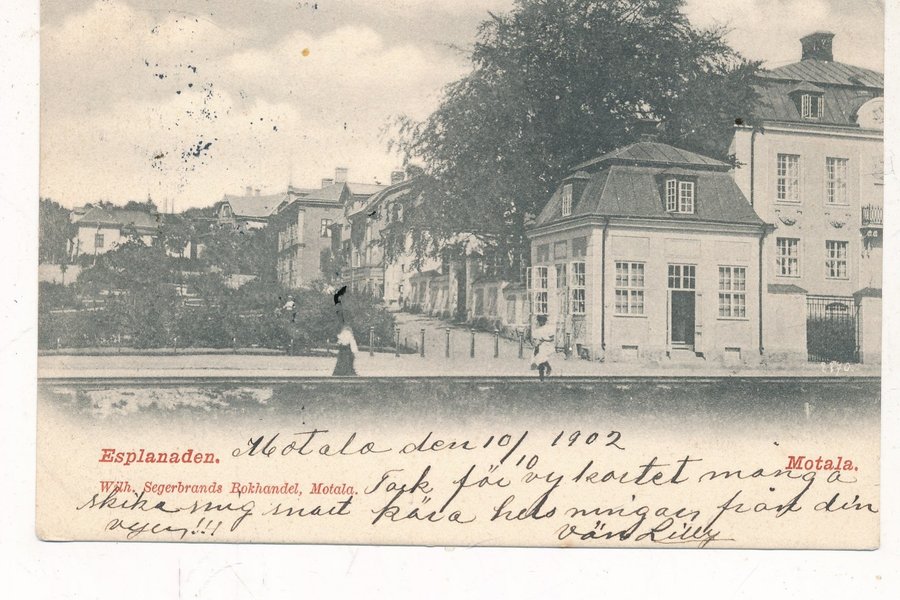 2870.
Esplanaden. Motala den 10/10 1902
Motala.
Wilh. Segerbrands Bokhandel, Motala. Tack för vykortet många
skika mig snart kära helsningar från din
vyer!!! vän Lilly